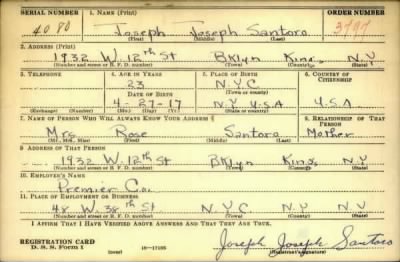 SERIAL NUMBER 1. NAME (Print) ORDER NUMBER
4080 Joseph Joseph Santoro 3797
(First) (Middle) (Last)
2. ADDRESS (Print)
1932 W. 12th St Bklyn Kings N.Y
(Number and street or R. F. D. number) (Town) (County) (State)
3. TELEPHONE 4. AGE IN YEARS 5. PLACE OF BIRTH 6. COUNTRY OF CITIZENSHIP
23 N.Y.C
DATE OF BIRTH (Town or county)
4-27-17 N.Y U.S.A U.S.A.
(Exchange) (Number) (Mo.) (Day) (Yr.) (State or country)
7. NAME OF PERSON WHO WILL ALWAYS KNOW YOUR ADDRESS 8. RELATIONSHIP OF THAT PERSON
Mrs Rose Santoro Mother
(Mr., Mrs., Miss) (First) (Middle) (Last)
9. ADDRESS OF THAT PERSON
1932 W. 12th St Bklyn Kings N.Y
(Number and street or R. F. D. number) (Town) (County) (State)
10. EMPLOYER'S NAME
Premier Co.
11. PLACE OF EMPLOYMENT OR BUSINESS
48 W. 38th St N.Y.C N.Y. N.Y
(Number and street or R. F. D. number) (Town) (County) (State)
I AFFIRM THAT I HAVE VERIFIED ABOVE ANSWERS AND THAT THEY ARE TRUE.
REGISTRATION CARD
D. S. S. Form 1 (over) 16-17105 Joseph Joseph Santoro
(Registrant's signature)